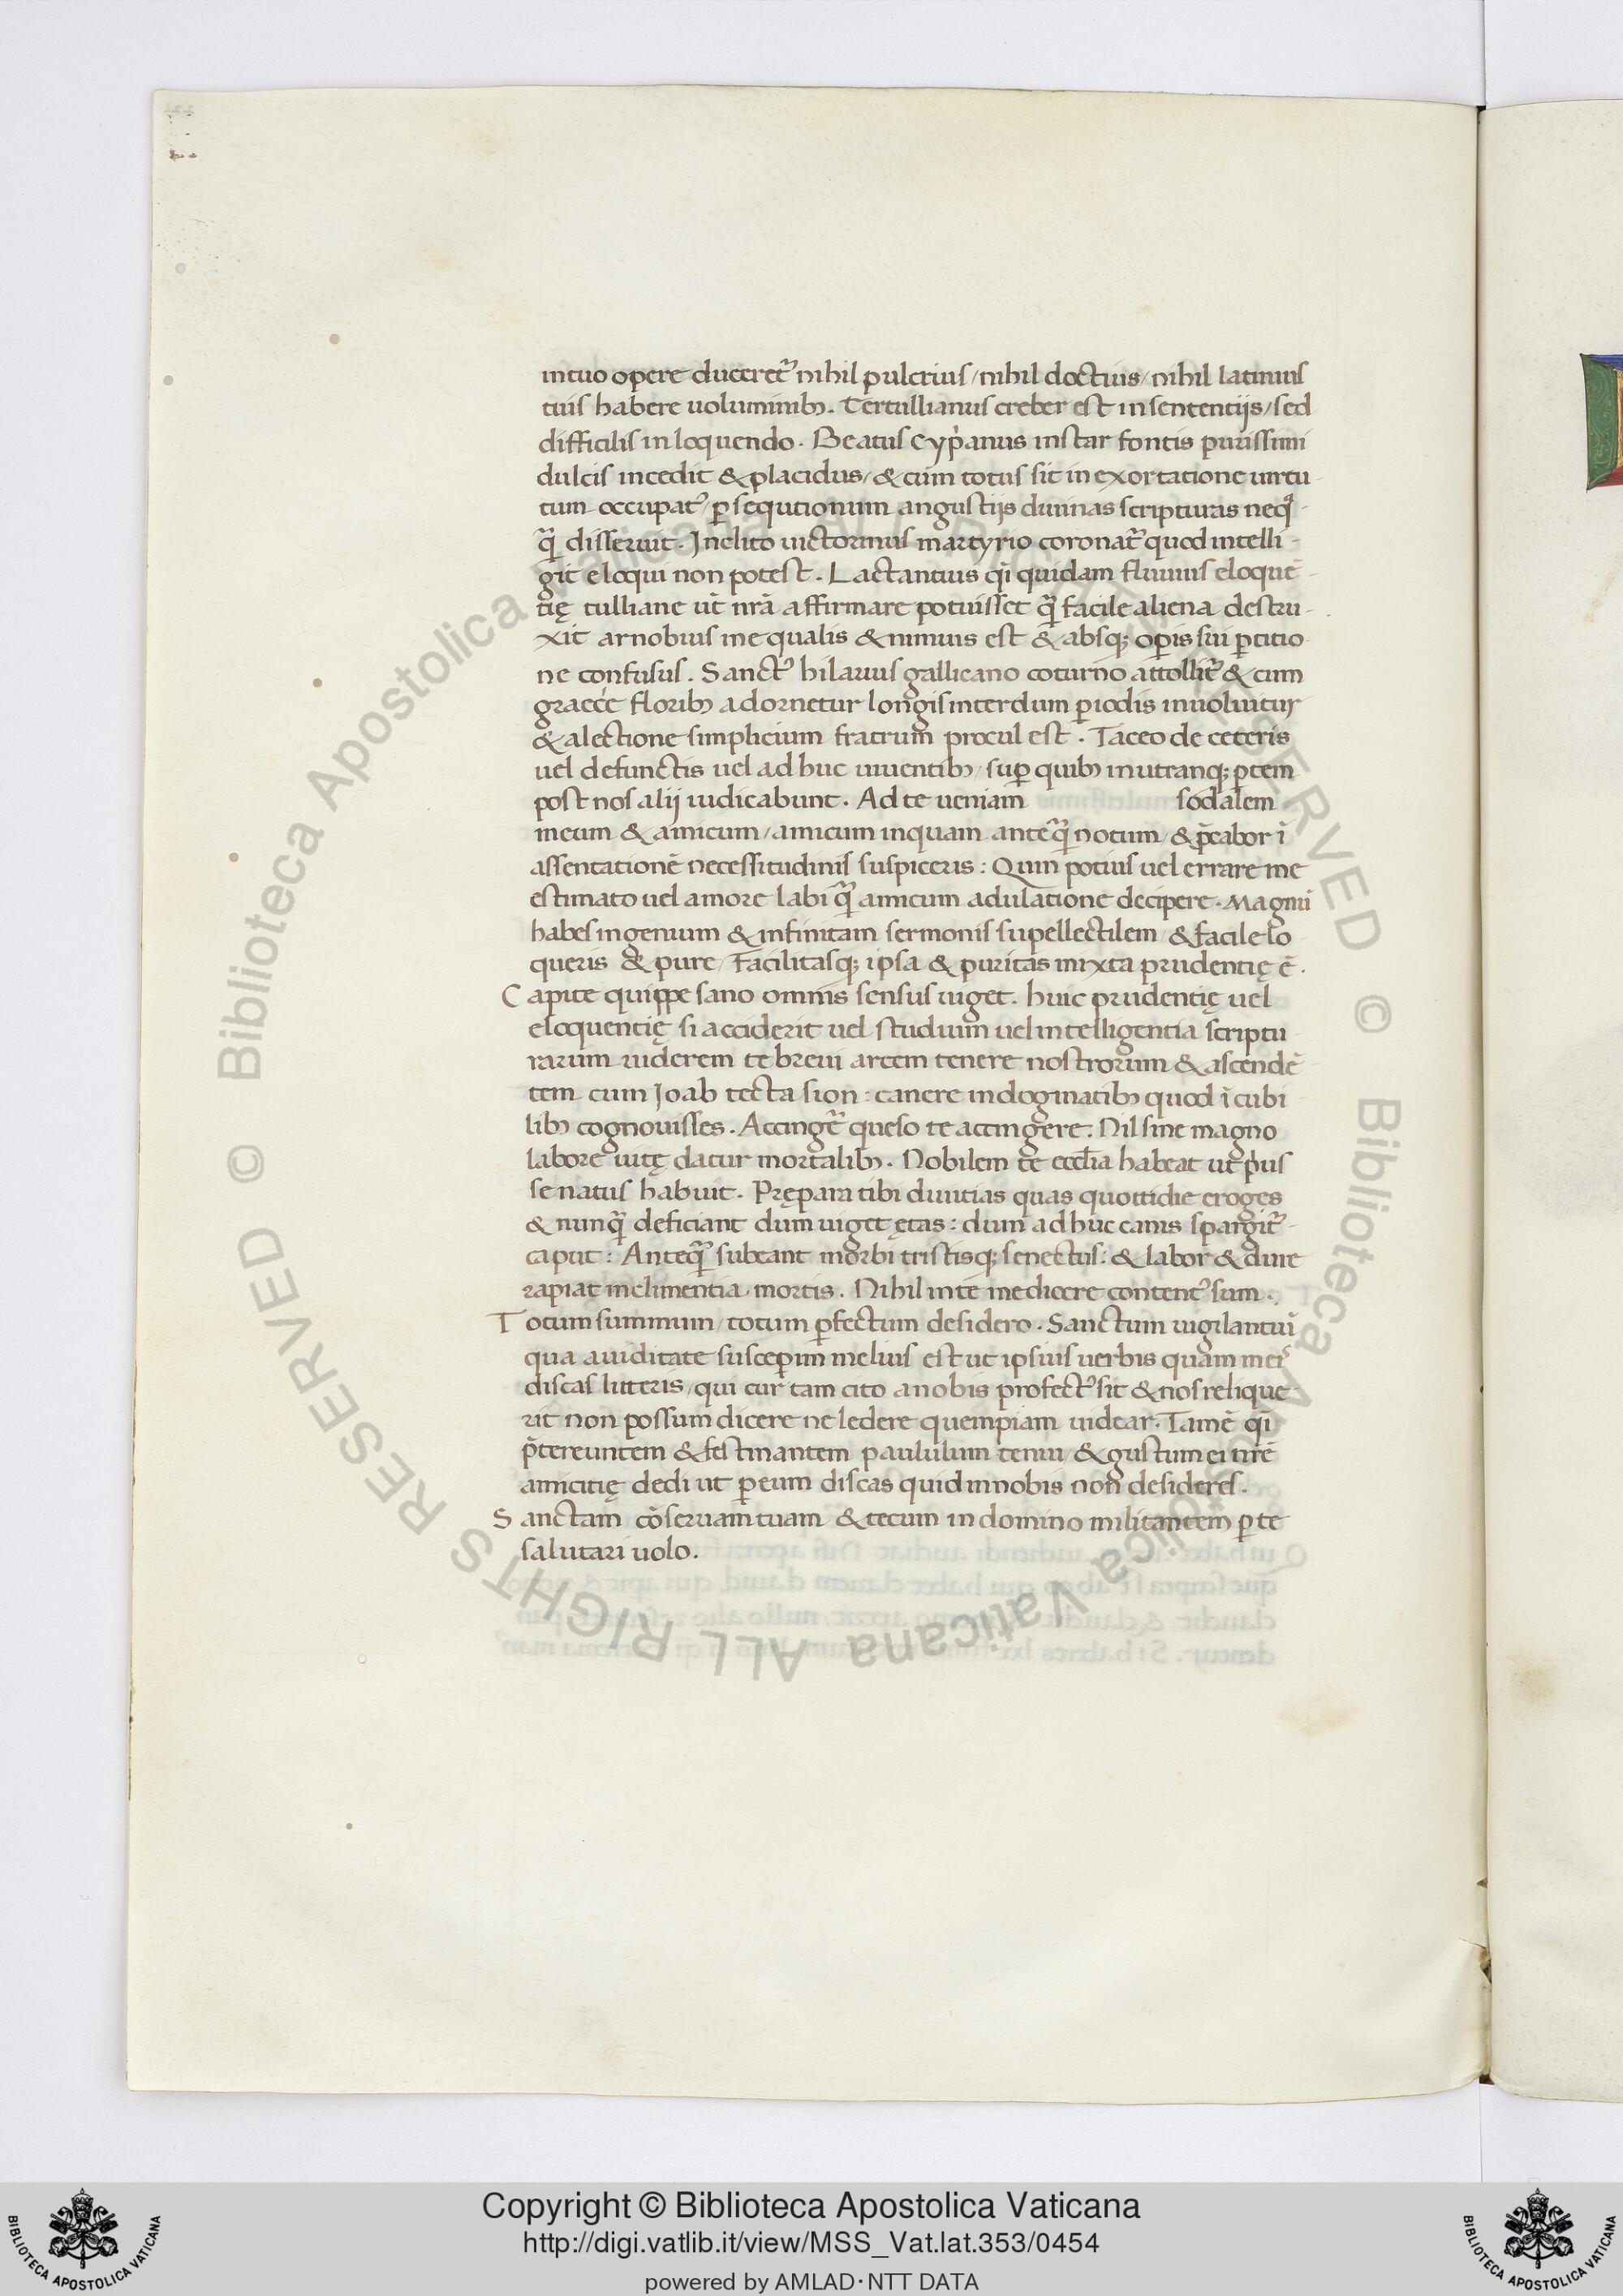 in tuo opere duceret᷑ nihil pulcrius / nihil doctius / nihil latinius
tuis habere uoluminibꝫ. Tertullianus creber est in sententijs / sed
difficilis in loquendo. Beatus Cyp̍anus instar fontis purissimi
dulcis incedit & placidus / & cum totus sit in exortatione uirtu
tum occupat᷑ / ꝑsequtionum angustijs diuinas scripturas neq̃
q̃ disseruit. Inclito uictorinus martyrio coronat᷑ quod intelli-
git eloqui non potest. Lactantius q̃i quidam fluuius eloquē
tię tulliane ut̄ nr̄a affirmare potuisset q̃ facile aliena destru-
xit arnobius inequalis & nimius est & absqꝫ oꝑis sui ꝑtitio
ne confusus. Sanct᷒ hilarius gallicano coturno attollit᷑ & cum
graece floribꝫ adornetur longis interdum ꝑiodis inuoluitur
& alectione simplicium fratrum procul est. Taceo de ceteris
uel defunctis uel ad huc uiuentibꝫ / suꝑ quibꝫ in utranqꝫ ꝑtem
post nos alij iudicabunt. Ad te ueniam sodalem
meum & amicum / amicum inquam anteq̃ notum / & p̄cabor ī
assentationē necessitudinis suspiceris: Quin potius uel errare me
estimato uel amore labi q̃ amicum adulatione decipere. Magnū
habes ingenium & infinitam sermonis supellectilem / & facile lo
queris & pure / Facilitasqꝫ ipsa & puritas mixta prudentię ē.
Capite quippe sano omnis sensus uiget. huic prudentię uel
eloquentię si acciderit uel studium uel intelligentia scriptu
rarum uiderem te breui arcem tenere nostrorum & ascendē
tem cum Joab tecta sion: canere in dogmatibꝫ quod ī cubi
libꝫ cognouisses. Accinger̄ queso te accingere. Nil sine magno
labore uitę datur mortalibꝫ. Nobilem te eccl̄ia habeat ut p̍us
senatus habuit. Prępara tibi diuitias quas quottidie eroges
& nunq̃ deficiant dum uiget ętas: dum ad huc canis spargit᷑
caput: Anteq̃ subeant morbi tristisqꝫ senectus: & labor & dure
rapiat inclimentia mortis. Nihil in te mediocre content᷒ sum.
Totum summum / totum ꝑfectum desidero. Sanctum uigilantiū
qua auiditate susceperim melius est ut ipsius uerbis quam meis
discas litteris / qui cur tam cito a nobis profect᷒ sit & nos relique
rit non possum dicere ne ledere quempiam uidear. Tamē q̃i
p̄tereuntem & festinantem paululum tenui / & gustum ei nr̄ē
amicitię dedi ut ꝑ eum discas quid in nobis non desideres.
Sanctam cōseruam tuam & tecum in domino militantem ꝑ te
salutari uolo.
© Biblioteca Apostolica Vaticana ALL RIGHTS RESERVED © Biblioteca Apostolica Vaticana ALL RIGHTS RESERVED
BIBLIOTECA APOSTOLICA VATICANA
Copyright © Biblioteca Apostolica Vaticana
http://digi.vatlib.it/view/MSS_Vat.lat.353/0454
powered by AMLAD·NTT DATA
BIBLIOTECA APOSTOLICA VATICANA